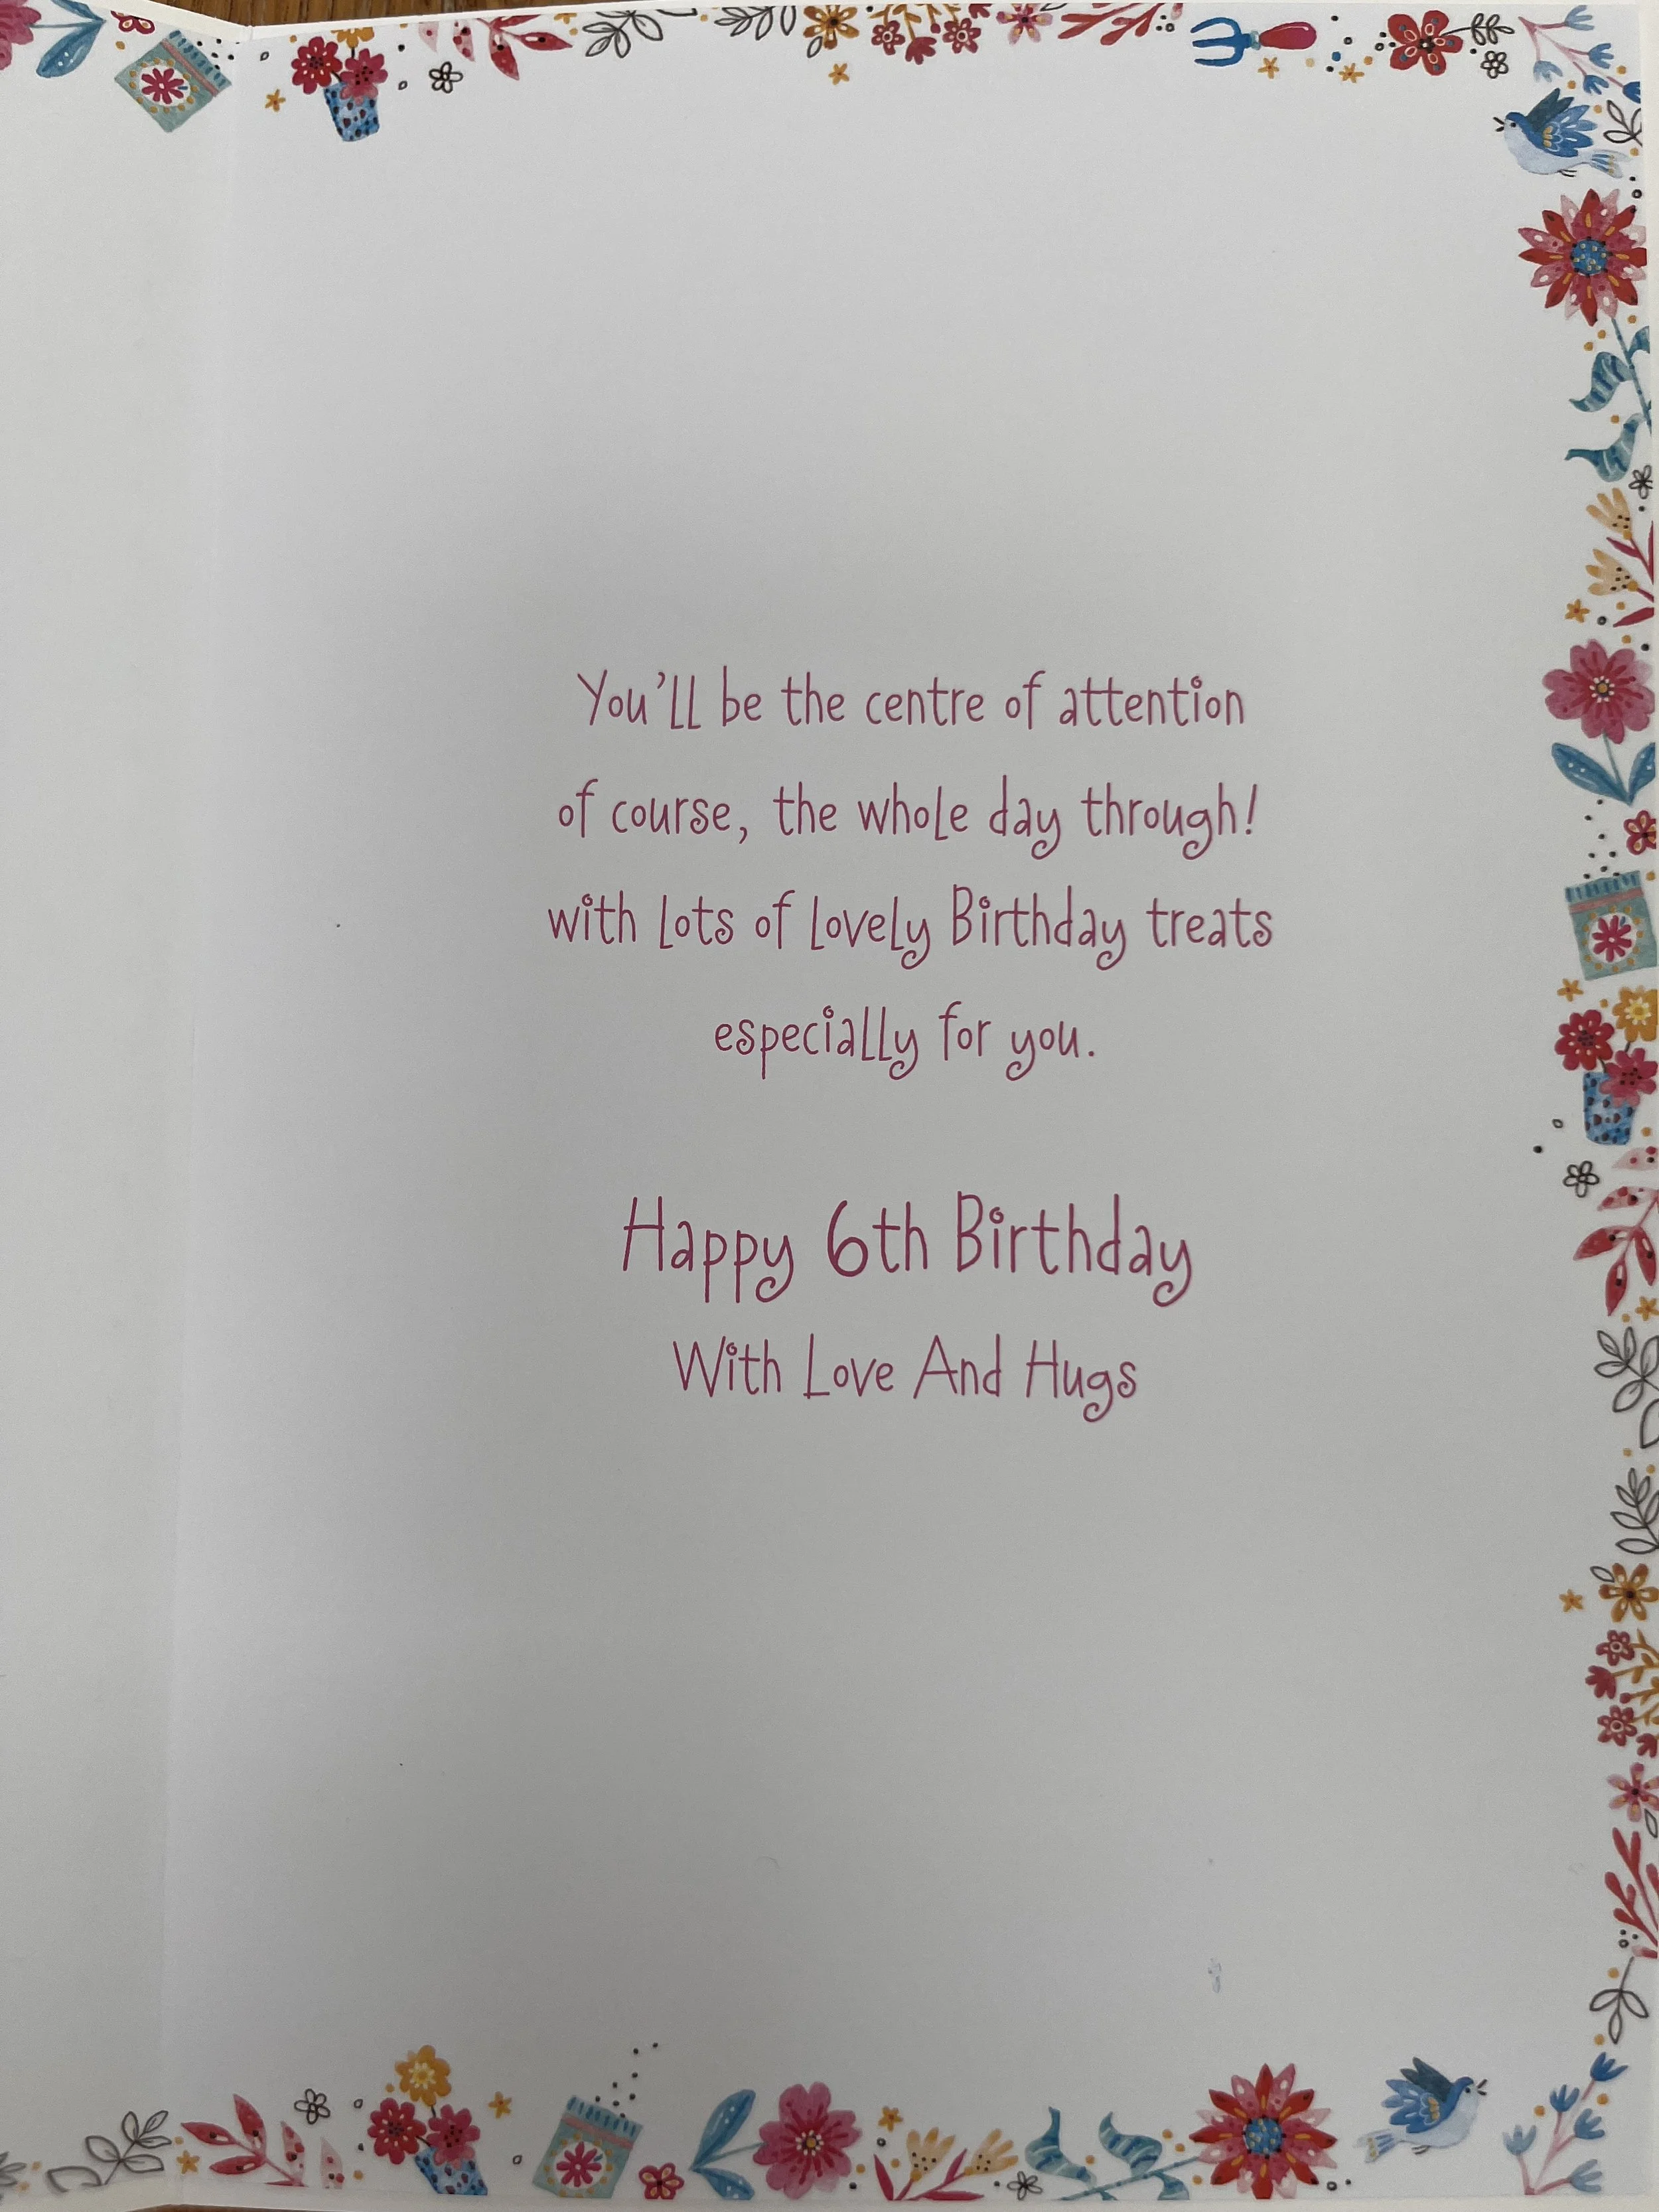 You'll be the centre of attention
of course, the whole day through!
with lots of lovely Birthday treats
especially for you.
Happy 6th Birthday
With Love And Hugs